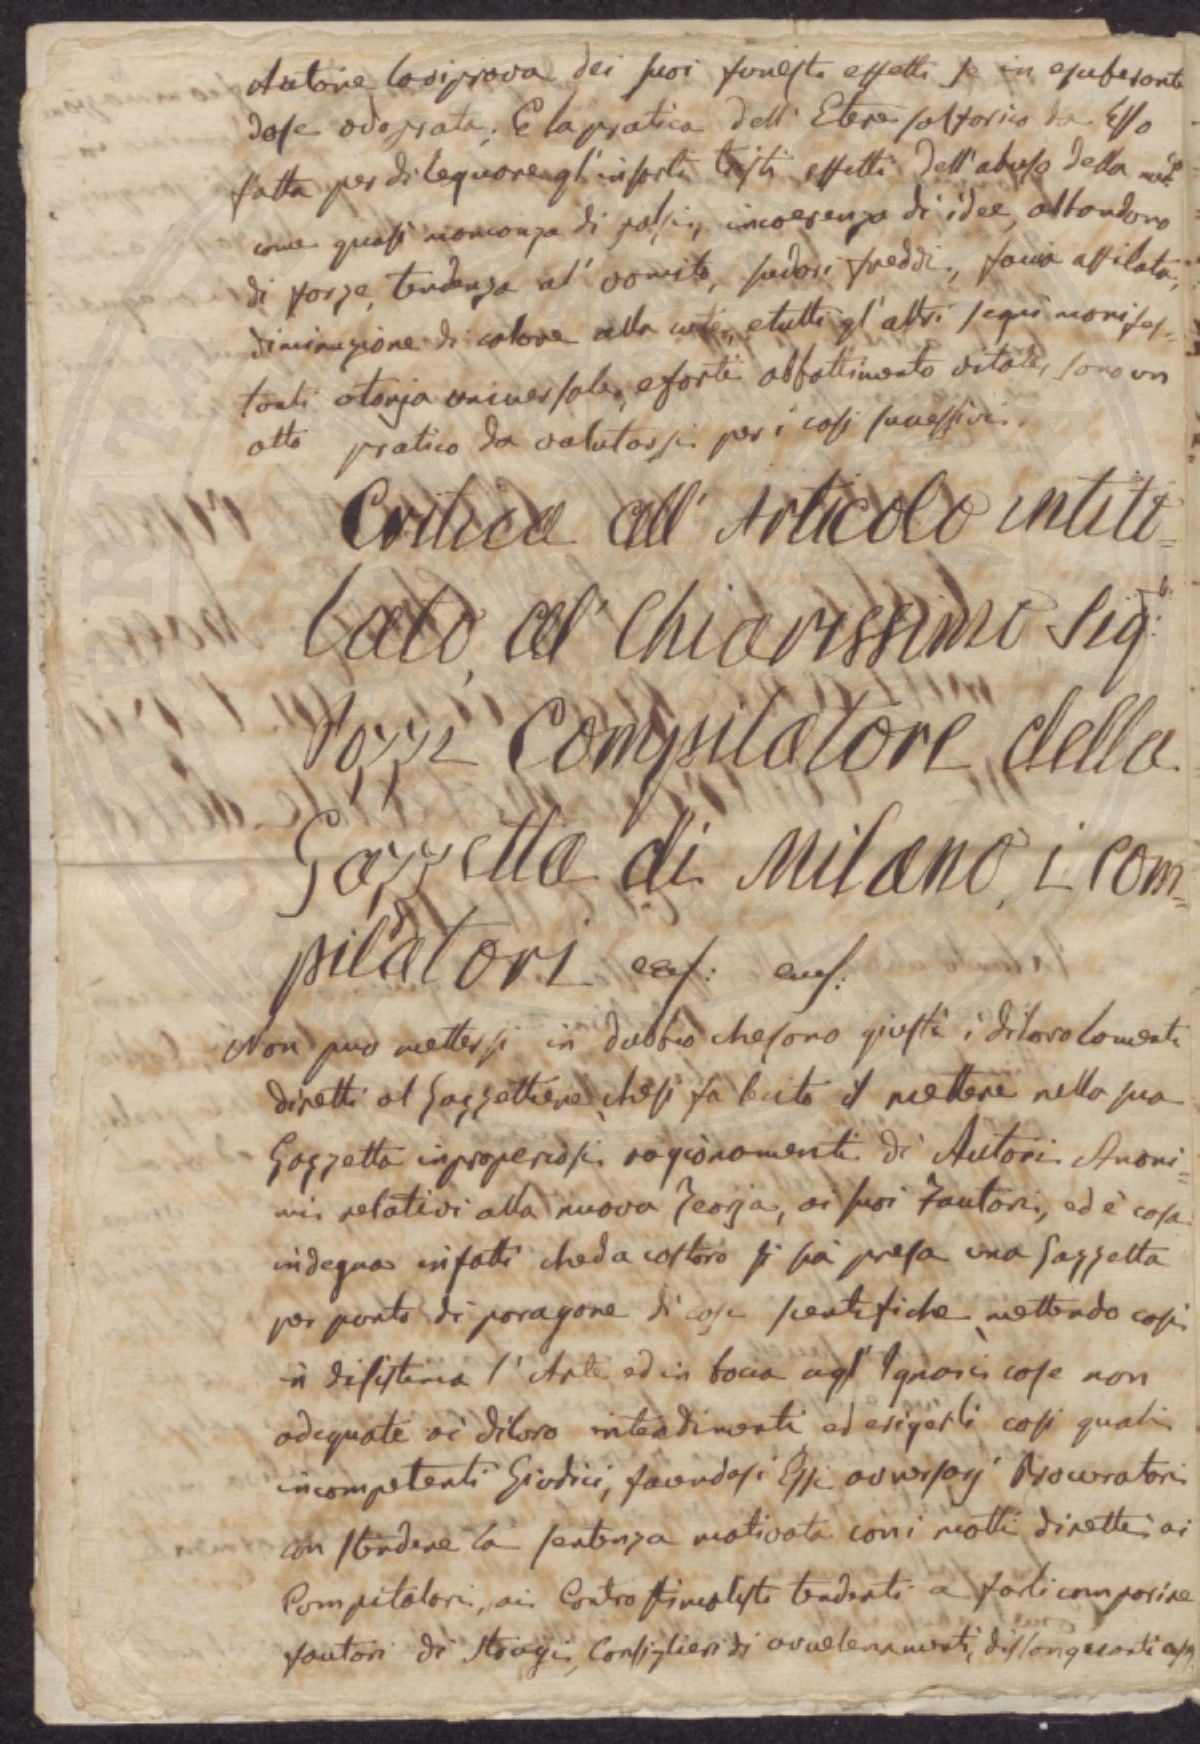 Autore la riprova dei suoi funesti effetti se in esuberante
dose adoprata. E la pratica dell' Etere solforico da Esso
fatta per dileguare gl' insorti tristi effetti dell' abuso della med:
come quasi mancanza di polsi, incoerenza di idee, abbandono
di forze, tendenza al' vomito, sudori freddi, facia affilata,
diminuzione di calore alla cute, e tutti gl' altri segni manifes=
tanti atonia universale, e forte abbattimento vitale, sono un
atto pratico da valutarsi per i casi successivi.
Critica all' Articolo intito=
lato, al' Chiarissimo Sig:
Pozzi Compilatore della
Gazzetta di Milano, i com=
pilatori
Non puo mettersi in dubbio che sono giusti i di loro lamenti
diretti al Gazzettiere, che si fa lecito il mettere nella sua
Gazzetta improperiosi ragionamenti di Autori Anoni=
mi relativi alla nuova Teoria, ai suoi Fautori, ed è cosa
indegna infatti che da costoro si sia presa una Gazzetta
per punto di paragone di cose scentifiche, mettendo così
in disistima l' Arte ed in bocca agl' Ignari cose non
adequate ai di loro intendimenti ed erigerli così quali
incompetenti Giudici, facendosi Essi avversarj Procuratori
con stendere la sentenza motivata con i motti diretti ai
Compilatori, ai Controstimolisti tendenti a farli comparire
fautori di stragi, Consiglieri di avvelenamenti, dissanguanti